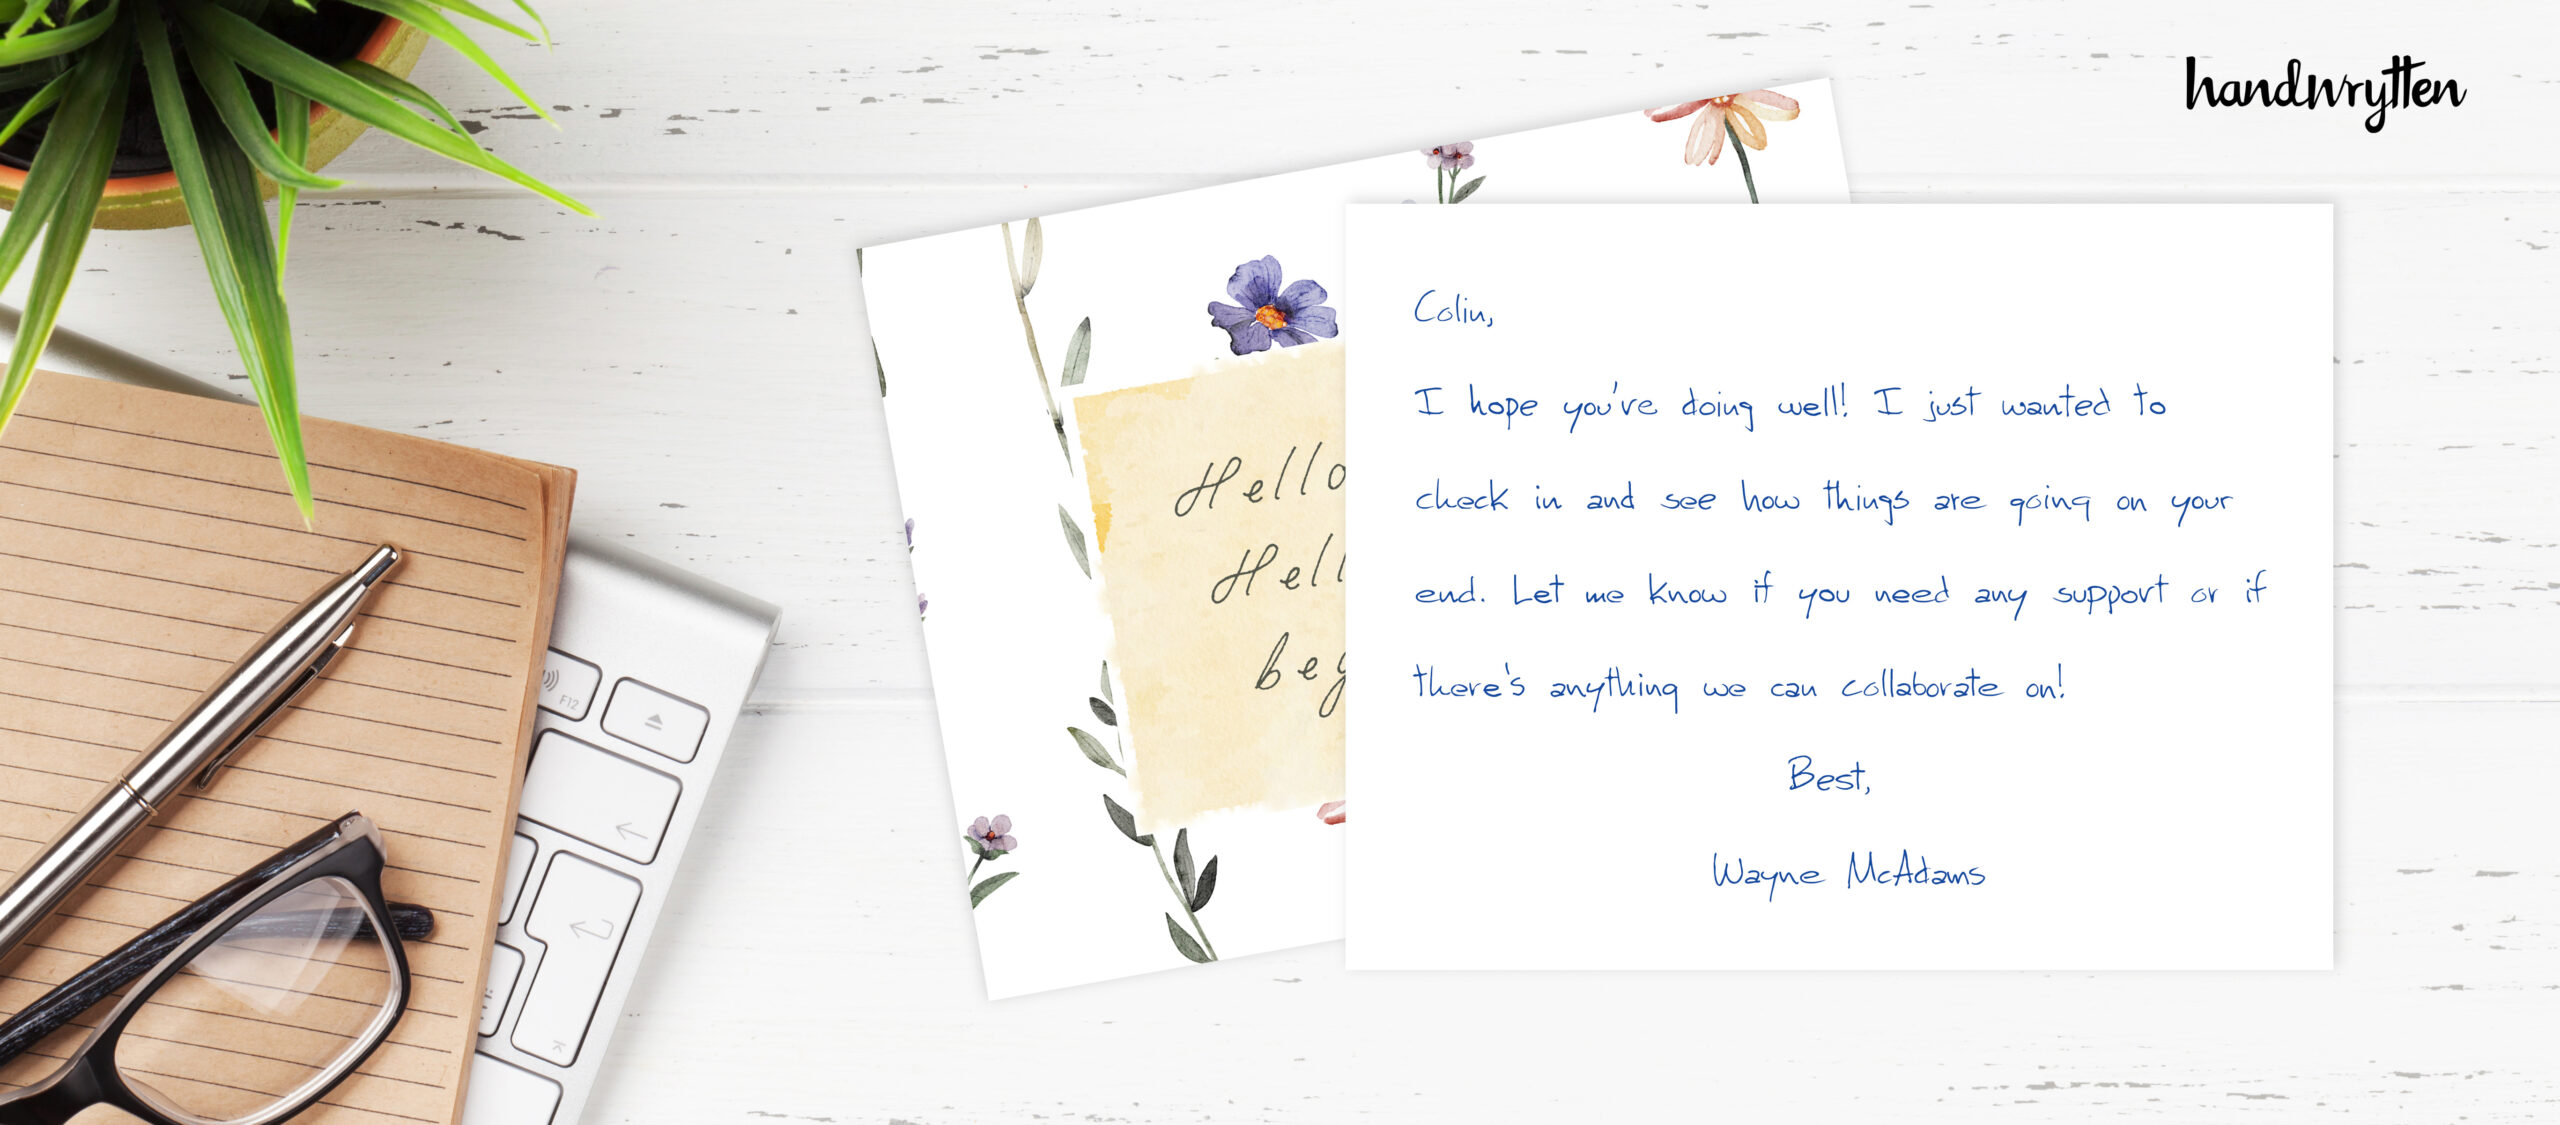 handwrytten
Hello
Hell
beg
Colin,
I hope you've doing well! I just wanted to
check in and see how things are going on your
end. Let me know if you need any support or if
there's anything we can collaborate on!
Best,
Wayne McAdams
F12